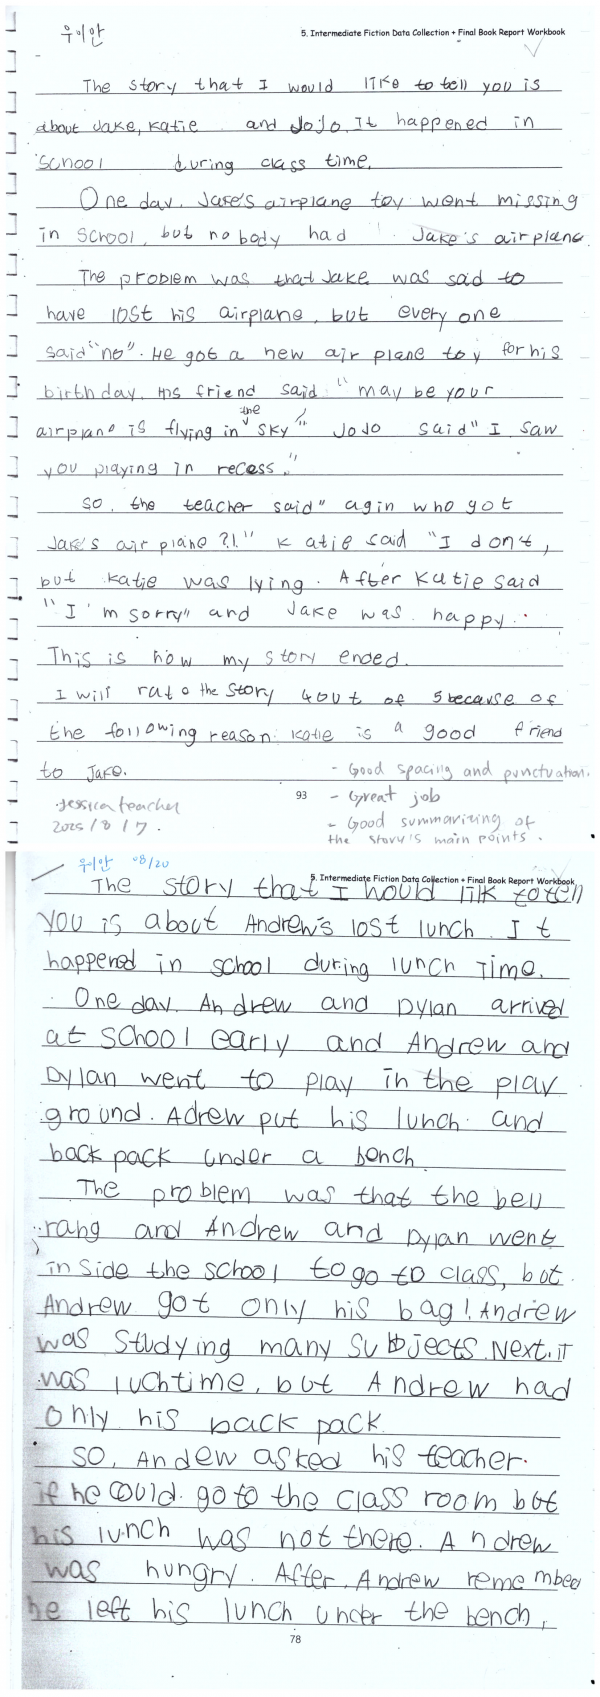 우이안
5. Intermediate Fiction Data Collection + Final Book Report Workbook
The story that I would like to tell you is
about Jake, Katie and JoJo. It happened in
School during class time.
One day, Jake's airplane toy went missing
in School, but nobody had Jake's airplane
The problem was that Jake was said to
have lost his airplane, but every one
said "no". He got a new air plane toy for his
birthday. His friend said "may be your
the
airplane is flying in sky" JoJo said "I saw
you playing in recess."
So, the teacher said" agin who got
Jake's air plane?!." Katie said "I don't,
but Katie was lying. After Katie said
"I'm sorry" and Jake was happy.
This is how my story ended.
I will rate the story 4 out of 5 because of
the following reason: Katie is a good friend
to Jake.
- Good spacing and punctuation.
93
- Great job
Jessica teacher
- Good summarizing of
2025/8/7.
the story's main points.
우이안 08/20
5. Intermediate Fiction Data Collection + Final Book Report Workbook
The story that I would lilk to tell
you is about Andrew's lost lunch. It
happened in school during lunch time.
One day. Andrew and Dylan arrived
at School early and Andrew and
Dylan went to play in the play
ground. Adrew put his lunch and
back pack under a bench.
The problem was that the bell
rang and Andrew and Dylan went
in side the school to go to class, but
Andrew got only his bag! Andrew
was studying many subjects. Next. it
was luchtime, but Andrew had
only his back pack.
So, Andew asked his teacher.
if he could go to the class room but
his lunch was not there. Andrew
was hungry. After, Andrew remembed
he left his lunch under the bench,
78